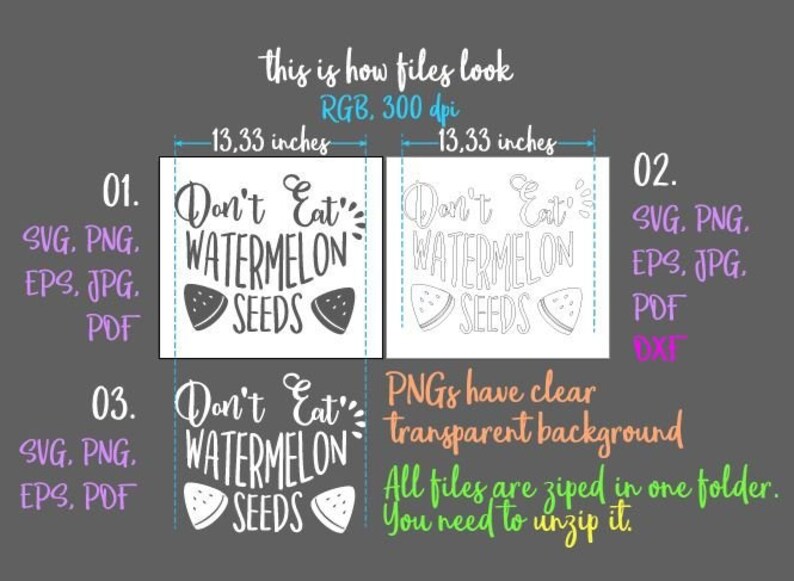 this is how files look
RGB, 300 dpi
13,33 inches
13,33 inches
01.
SVG, PNG,
EPS, JPG,
PDF
Don't Eat
WATERMELON
SEEDS
Don't Eat
WATERMELON
SEEDS
02.
SVG, PNG,
EPS, JPG,
PDF
DXF
03.
SVG, PNG,
EPS, PDF
Don't Eat
WATERMELON
SEEDS
PNGs have clear
transparent background
All files are ziped in one folder.
You need to unzip it.